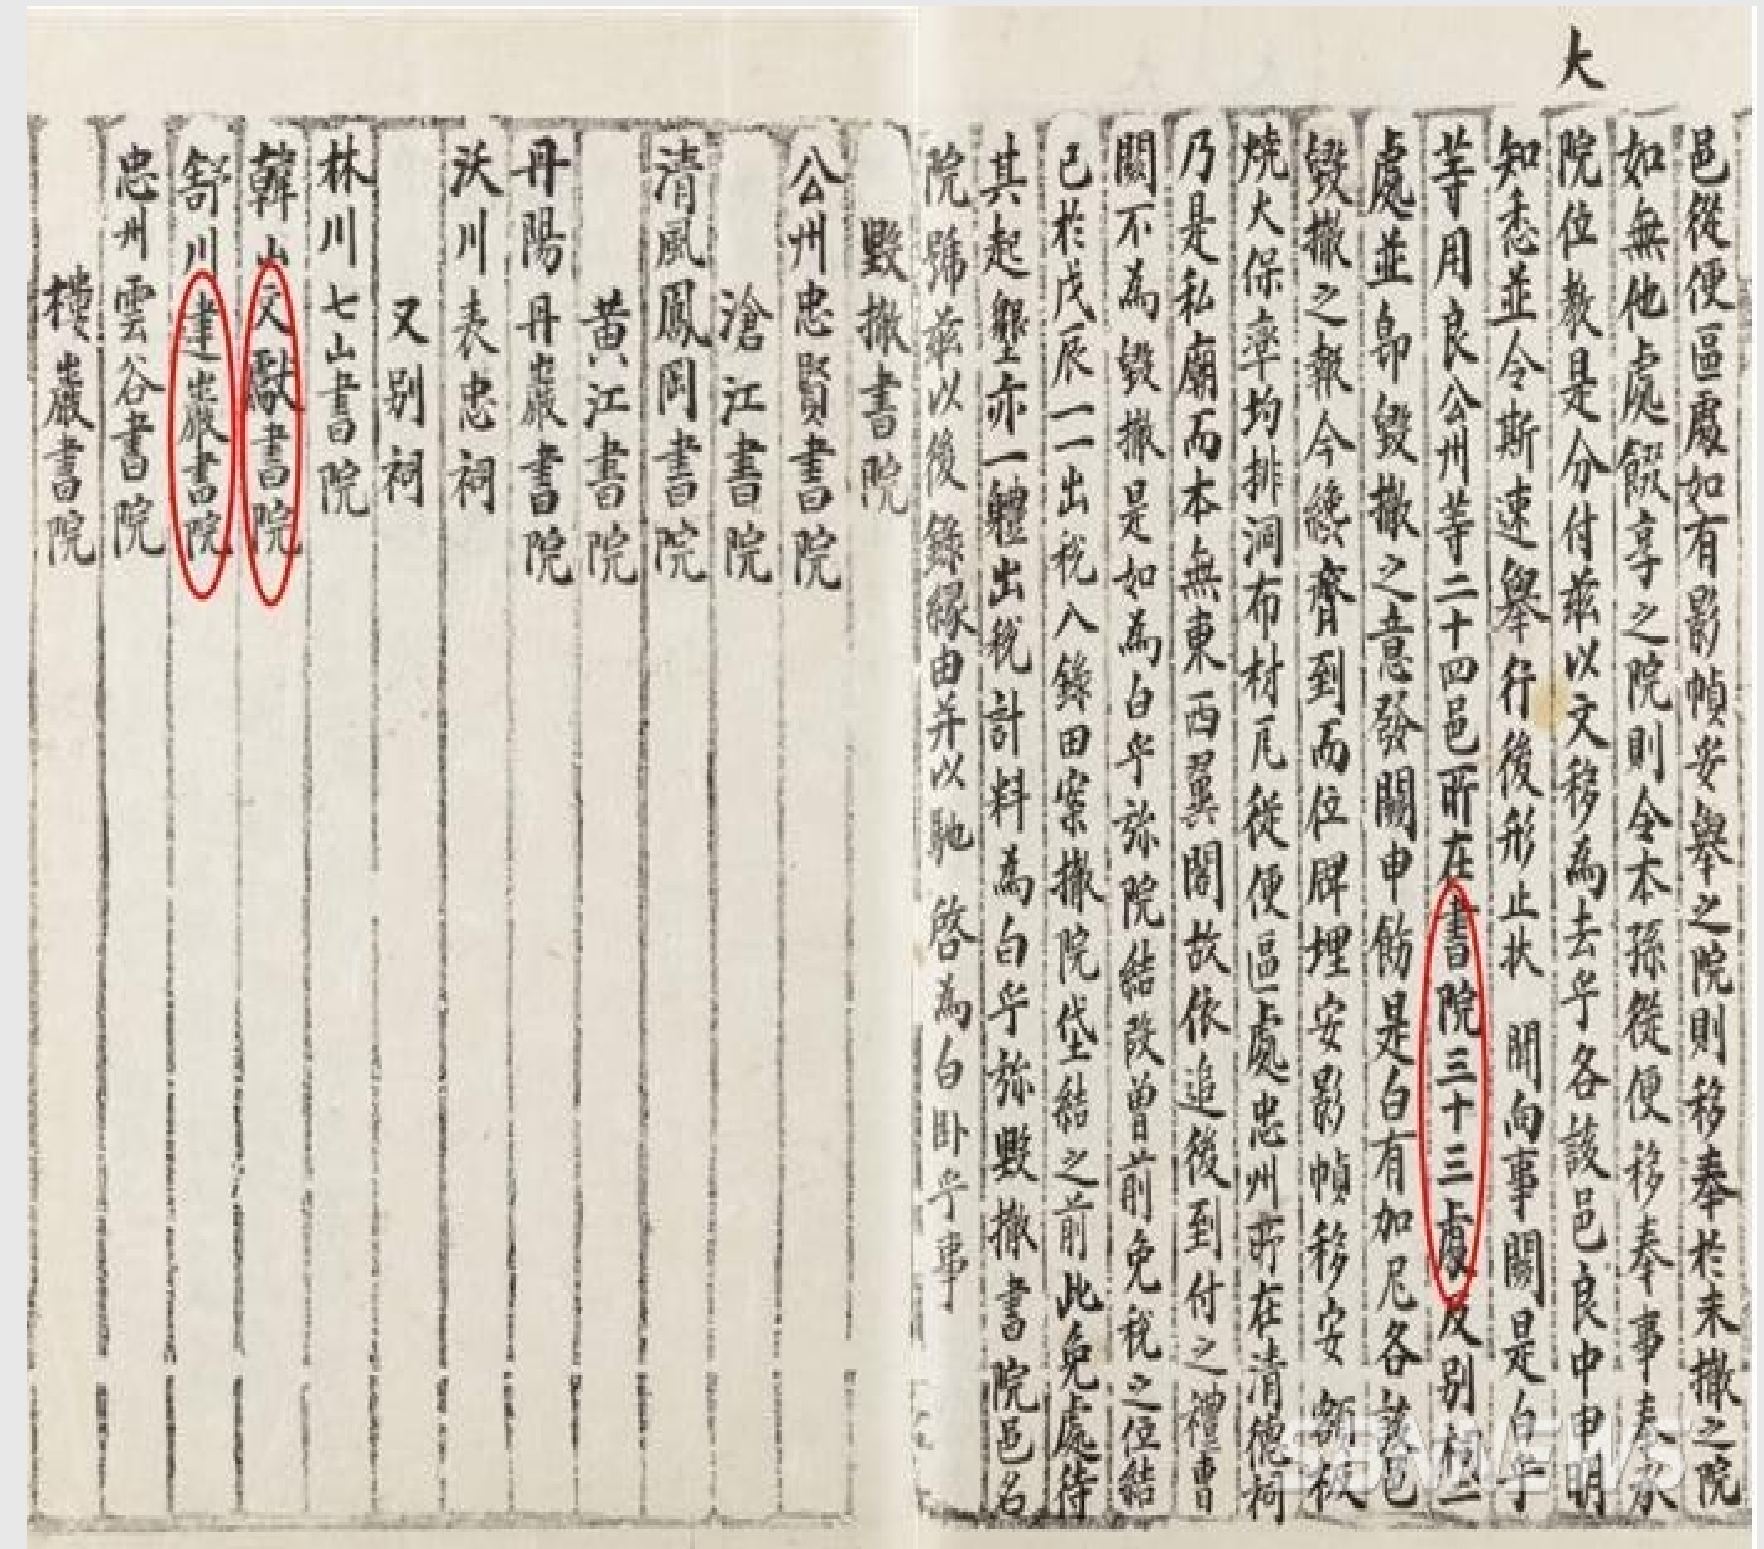 大
邑從便區處如有影幀安舉之院則移奉於未撤之院
如無他處餟享之院則令本孫從便移奉事奉承
院位教是分付玆以文移為去乎各該邑良中申明
知悉並令斯速擧行後形止狀 聞向事關是白乎
等用良公州等二十四邑所在書院三十三處及別祠二
處並卽毀撤之意發關申飭是白有加尼各該邑
毀撤之報今纔齊到而位牌埋安影幀移安額板
燒火保率均排洞布材瓦從便區處忠州所在清德祠
乃是私廟而本無東西翼閣故依追後到付之禮曹
關不為毀撤是如為白乎㫆院結段曾前免稅之位結
已於戊辰一一出稅入錄田案撤院垈結之前此免處待
其起墾亦一體出稅計料為白乎㫆毀撤書院邑名
院號玆以後錄緣由幷以馳 啓為白臥乎事
毀撤書院
公州忠賢書院
滄江書院
清風鳳岡書院
黃江書院
丹陽丹巖書院
沃川表忠祠
又別祠
林川七山書院
韓山文獻書院
舒川建巖書院
忠州雲谷書院
樓巖書院
NEWS